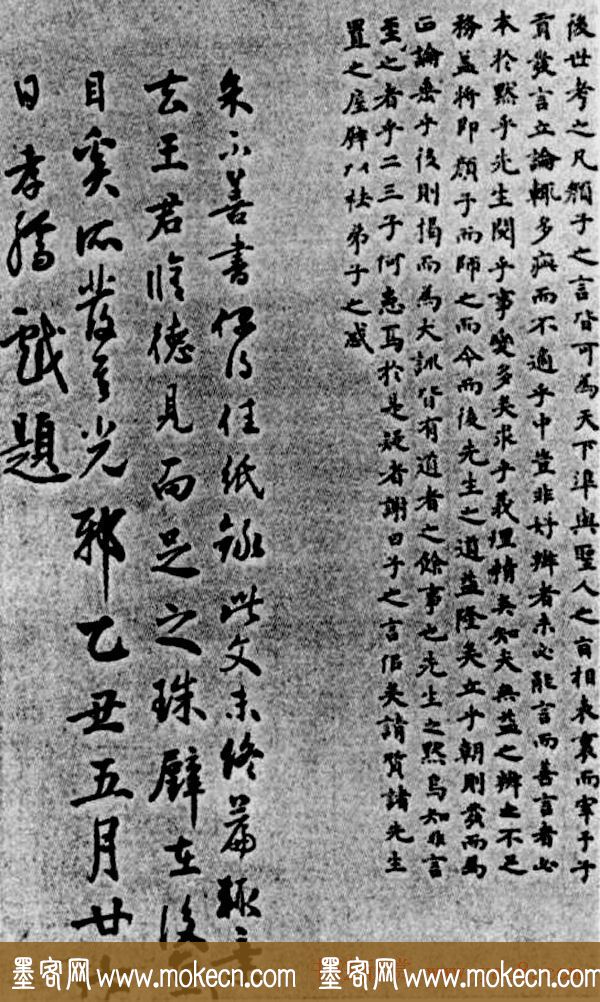 後世考之凡顏子之言皆可為天下準與聖人之言相表裏而宰予子
貢發言立論輒多疵而不適乎中豈非好辨者未必能言而善言者必
本於默乎先生閱乎事變多矣求乎義理精矣知夫無益之辨之不足
務益將即顏子而師之而今而後先生之道益隆矣立乎朝則發而為
正論垂乎後則揭而為大訓皆有道者之餘事也先生之默烏知非言
至之者乎二三子何惑焉於是疑者謝曰子之言信矣請質諸先生
置之座牌以祛弟子之惑
朱不善書 佳紙錄此文未終篇輒
去王君惟德見而足之珠璧在後
目奚所發其光邪乙丑五月廿
日孝孺戲題
墨客网 www.mokecn.com 墨客网 www.mokecn.com